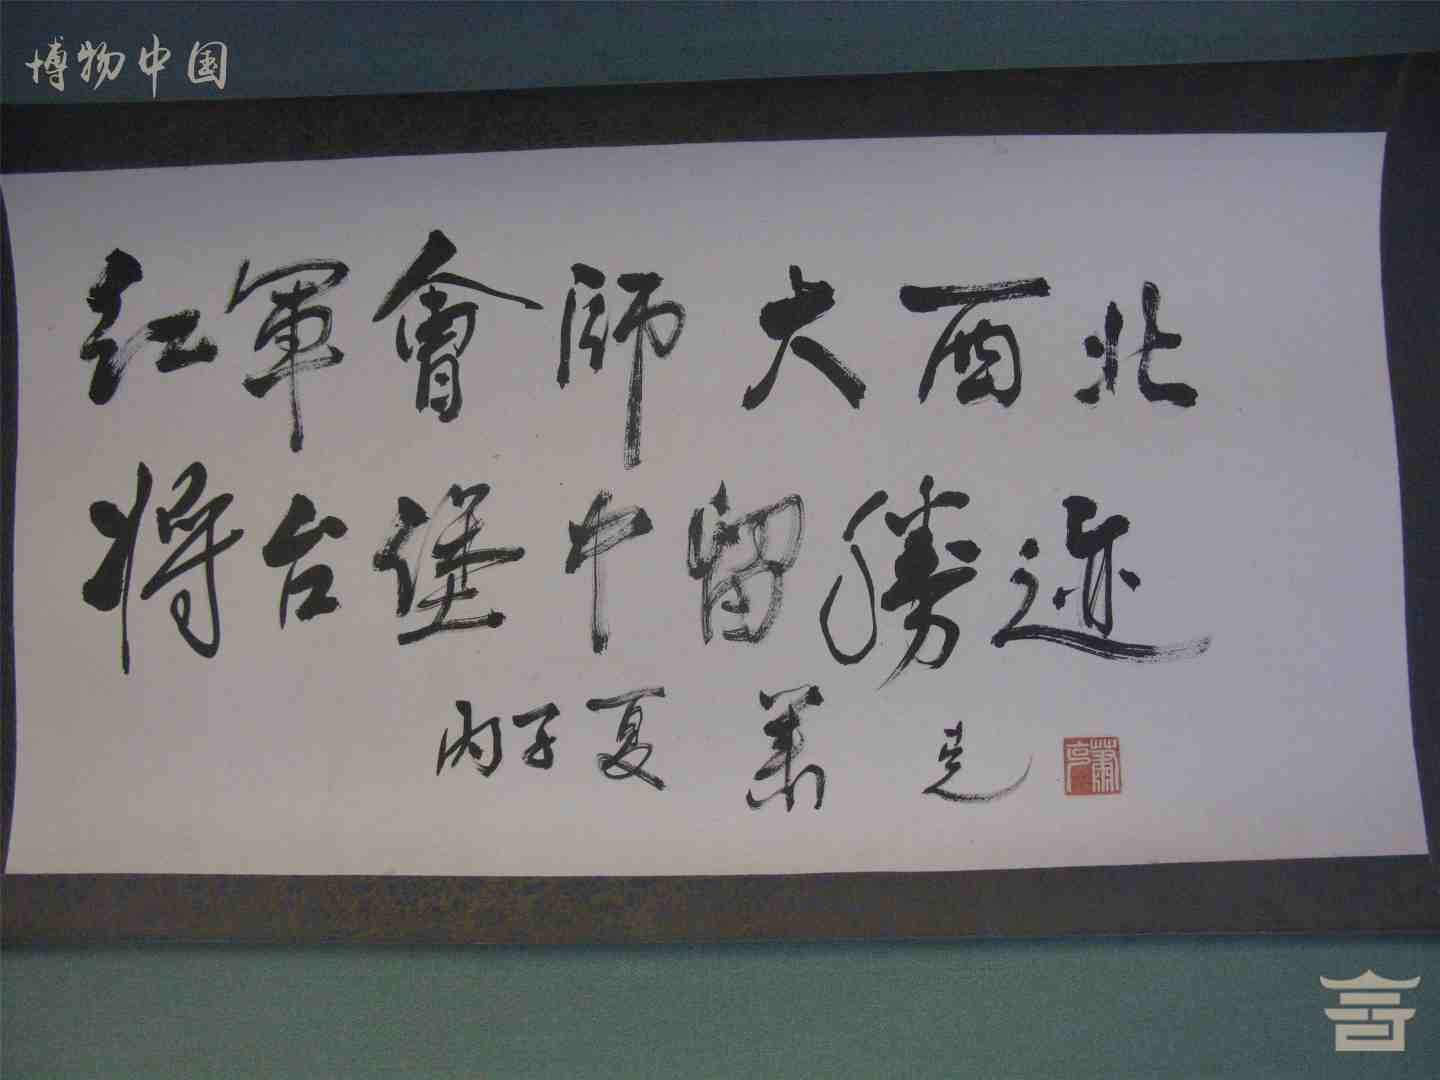 博物中国
红軍會師大西北
将台堡中留勝迹
丙子夏 萧克
蕭克